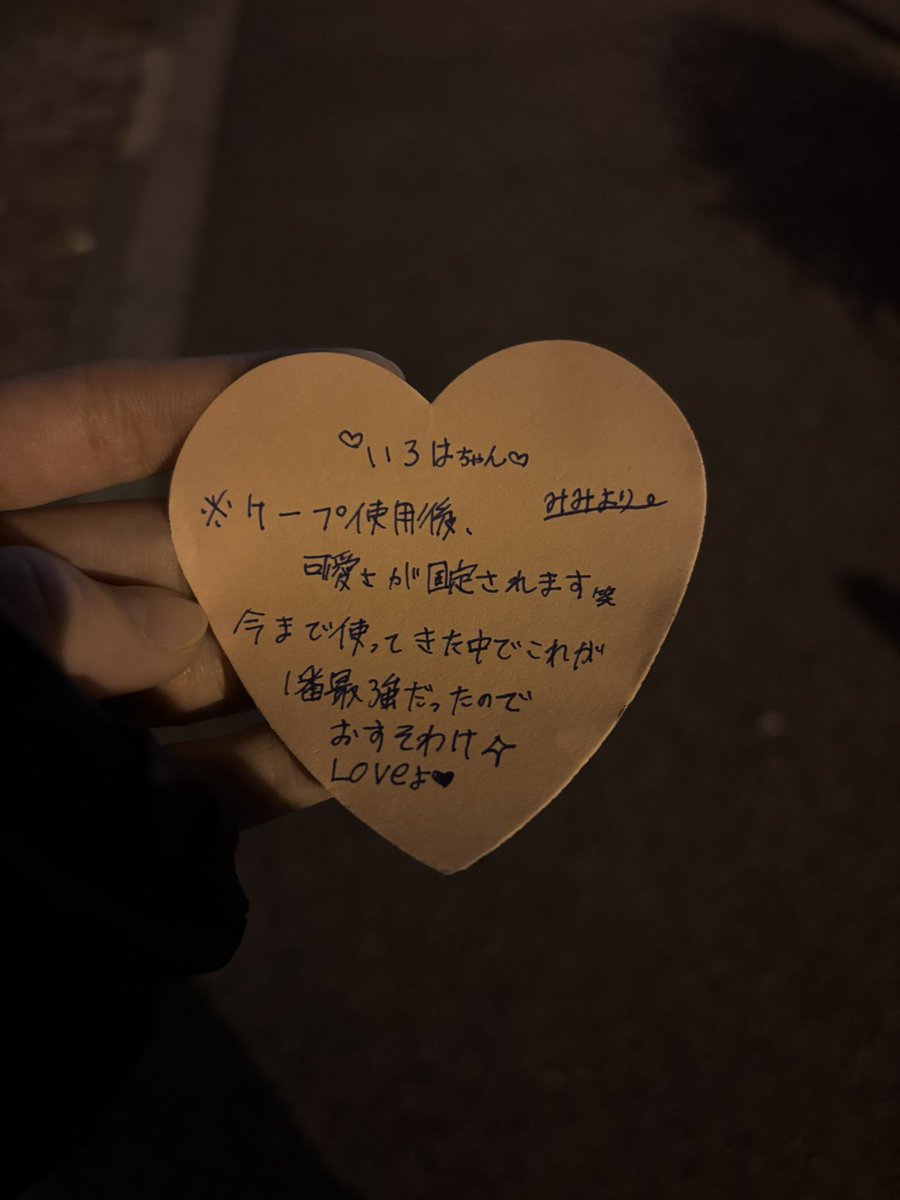 ♡いろはちゃん♡
みみより
※ケープ使用後、
可愛さが固定されます笑
今まで使ってきた中でこれが
1番最強だったので
おすそわけ✧
Loveよ♥